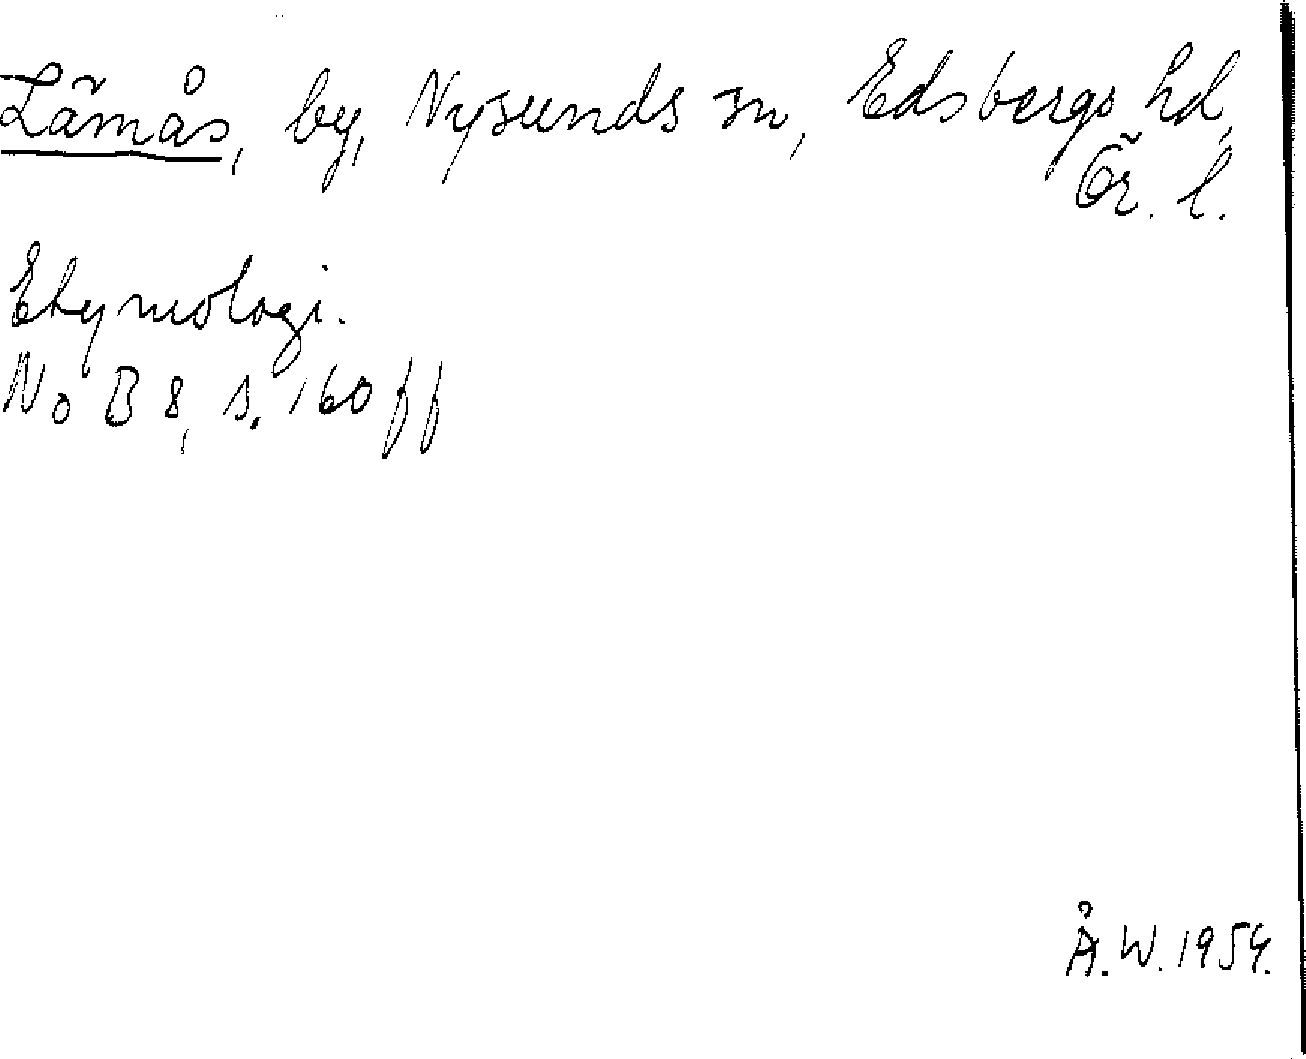 Lämås, by, Nysunds sn, Edsbergs hd,
Ör. l.
Etymologi.
NoB 8, s. 160 ff
Å.W. 1954.